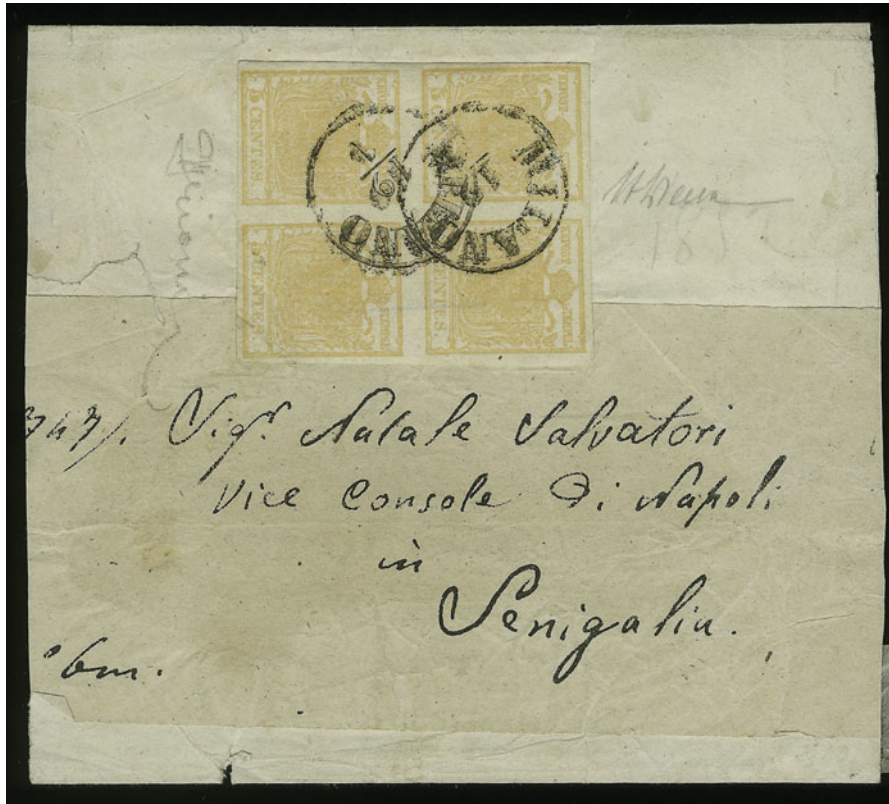 5 CENTES.
5 CENTES.
CENTES.
CENTES.
MILANO
MILANO
Sigr. Natale Salvatori
Vice Console Di Napoli
in
Senigalia.
6m.